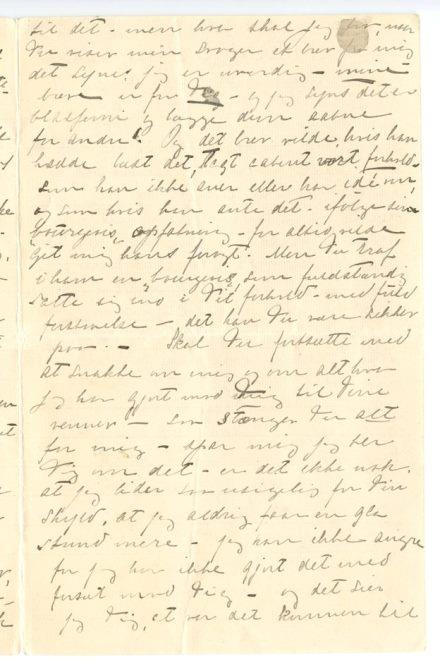 til det – men hva skal jeg tro, naar
Du viser min Svoger et brev fra mig
det synes jeg er uværdig – mine
breve er for Dig – og jeg synes det er
blasfemi og lægge dem aabne
for andre! Og det brev vilde, hvis han
hadde læst det, lagt aabent vort forhold
som han ikke aner eller har idé om,
og som hvis han ante det – ifølge sin
"bourgeois" opfatning – for altid vilde
gjet mig hans foragt. Men Du traf
i ham en "bourgeois", som fuldstændig
satte sig ind i Dit forhold – med fuld
forstaaelse – det kan Du være sikker
paa. – Skal Du fortsætte med
at snakke om mig og om alt hva
jeg har gjort mod Dig til Dine
venner – saa stænger Du alt
for mig – spar mig jeg ber
Dig om det – er det ikke nok,
at jeg lider saa usigelig for Din
skyld, at jeg aldrig faar en gla
stund mere – jeg kan ikke angre
for jeg har ikke gjort det med
forsæt mod Dig – og det sier
jeg Dig, at var det kommen til